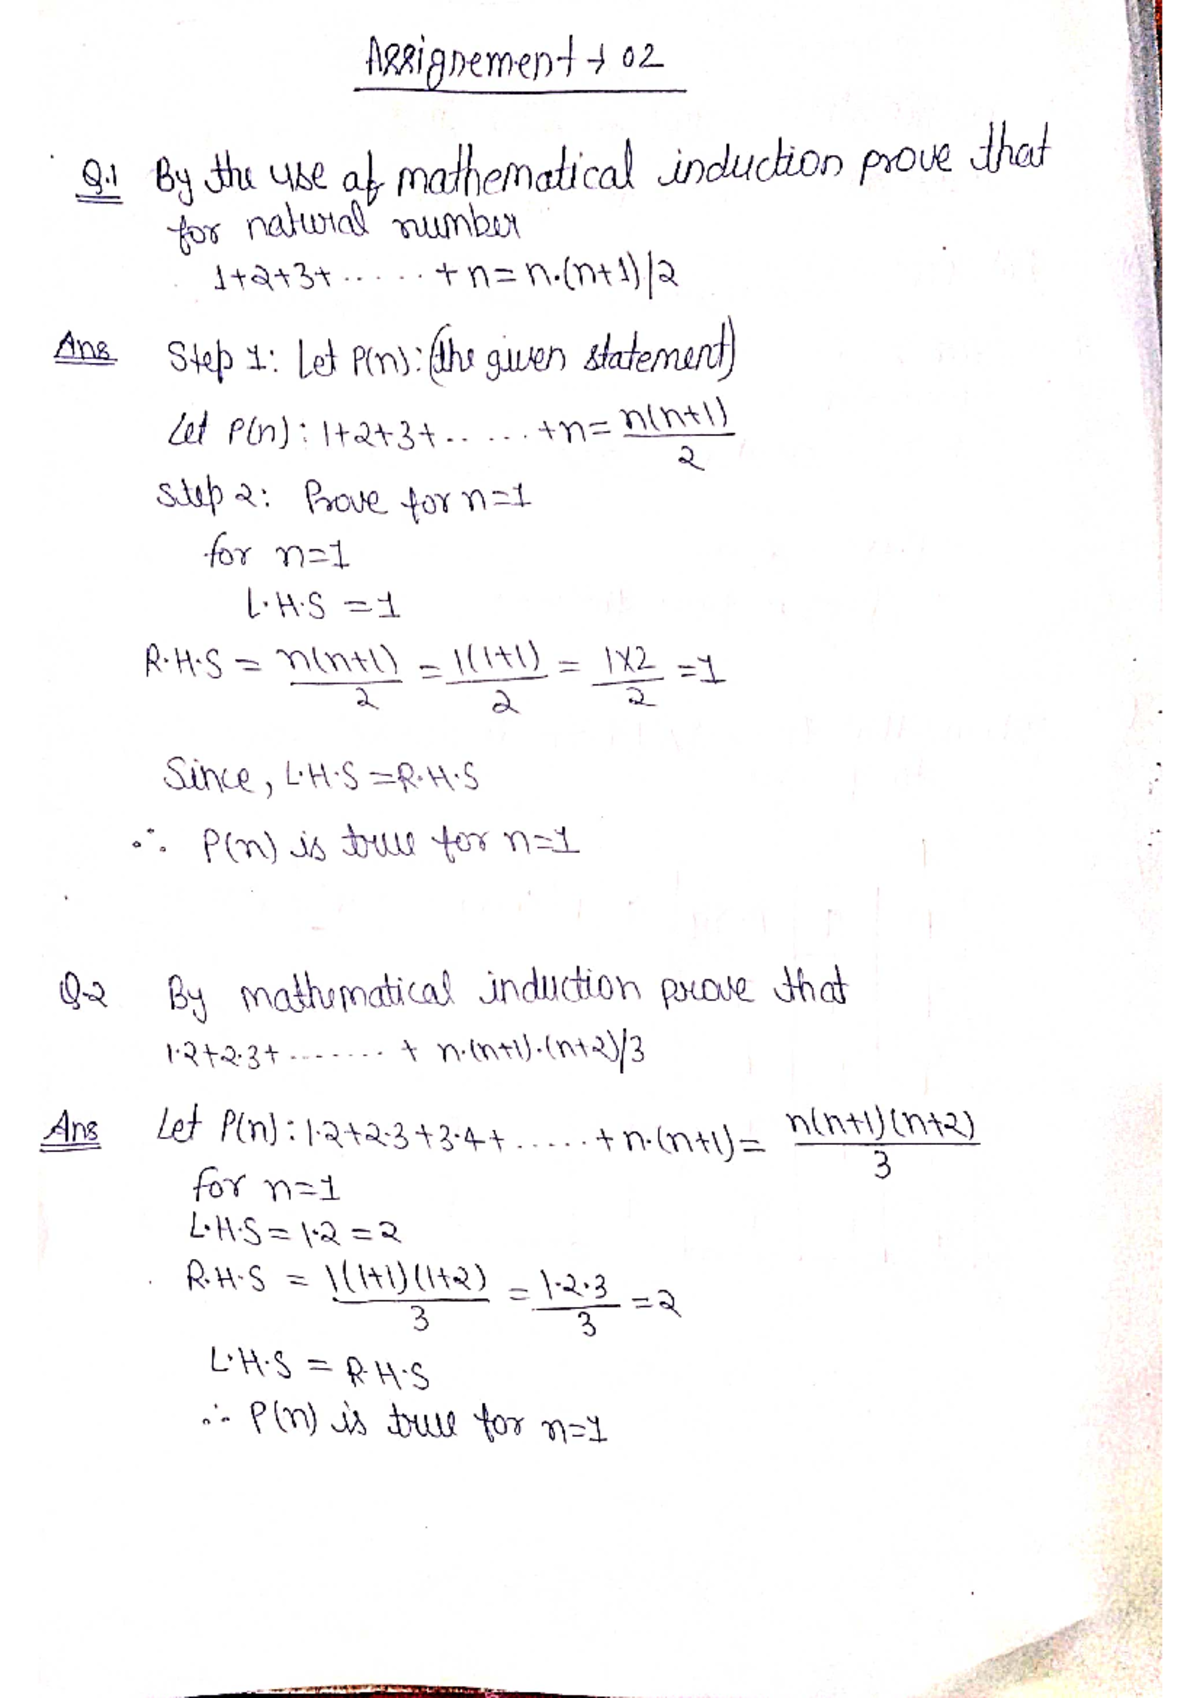 Assignement → 02
Q.1 By the use of mathematical induction prove that
for natural number
1+2+3+ ...... +n=n.(n+1)/2
Ans Step 1: Let P(n): (the given statement)
Let P(n): 1+2+3+ ...... +n= n(n+1)/2
Step 2: Prove for n=1
for n=1
L.H.S =1
R.H.S = n(n+1)/2 = 1(1+1)/2 = 1×2/2 =1
Since, L.H.S =R.H.S
∴ P(n) is true for n=1
Q-2 By mathematical induction prove that
1.2+2.3+ ........ + n.(n+1).(n+2)/3
Ans Let P(n): 1.2+2.3+3.4+ ...... +n.(n+1)= n(n+1)(n+2)/3
for n=1
L.H.S = 1.2 =2
R.H.S = 1(1+1)(1+2)/3 = 1.2.3/3 =2
L.H.S = R.H.S
∴ P(n) is true for n=1